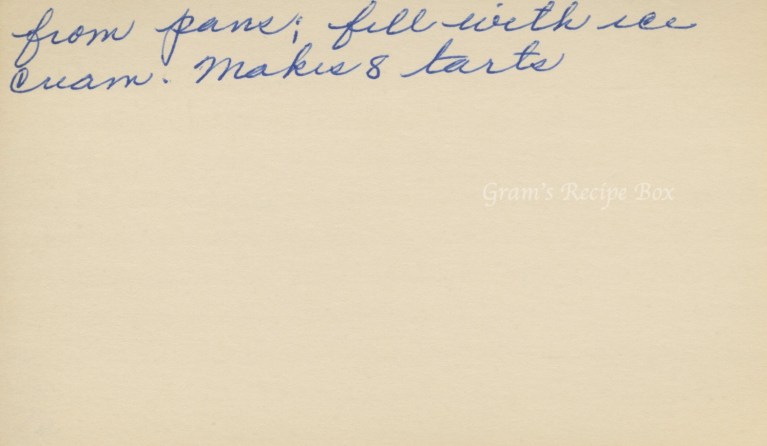 from pans; fill with ice
cream. Makes 8 tarts
Gram's Recipe Box